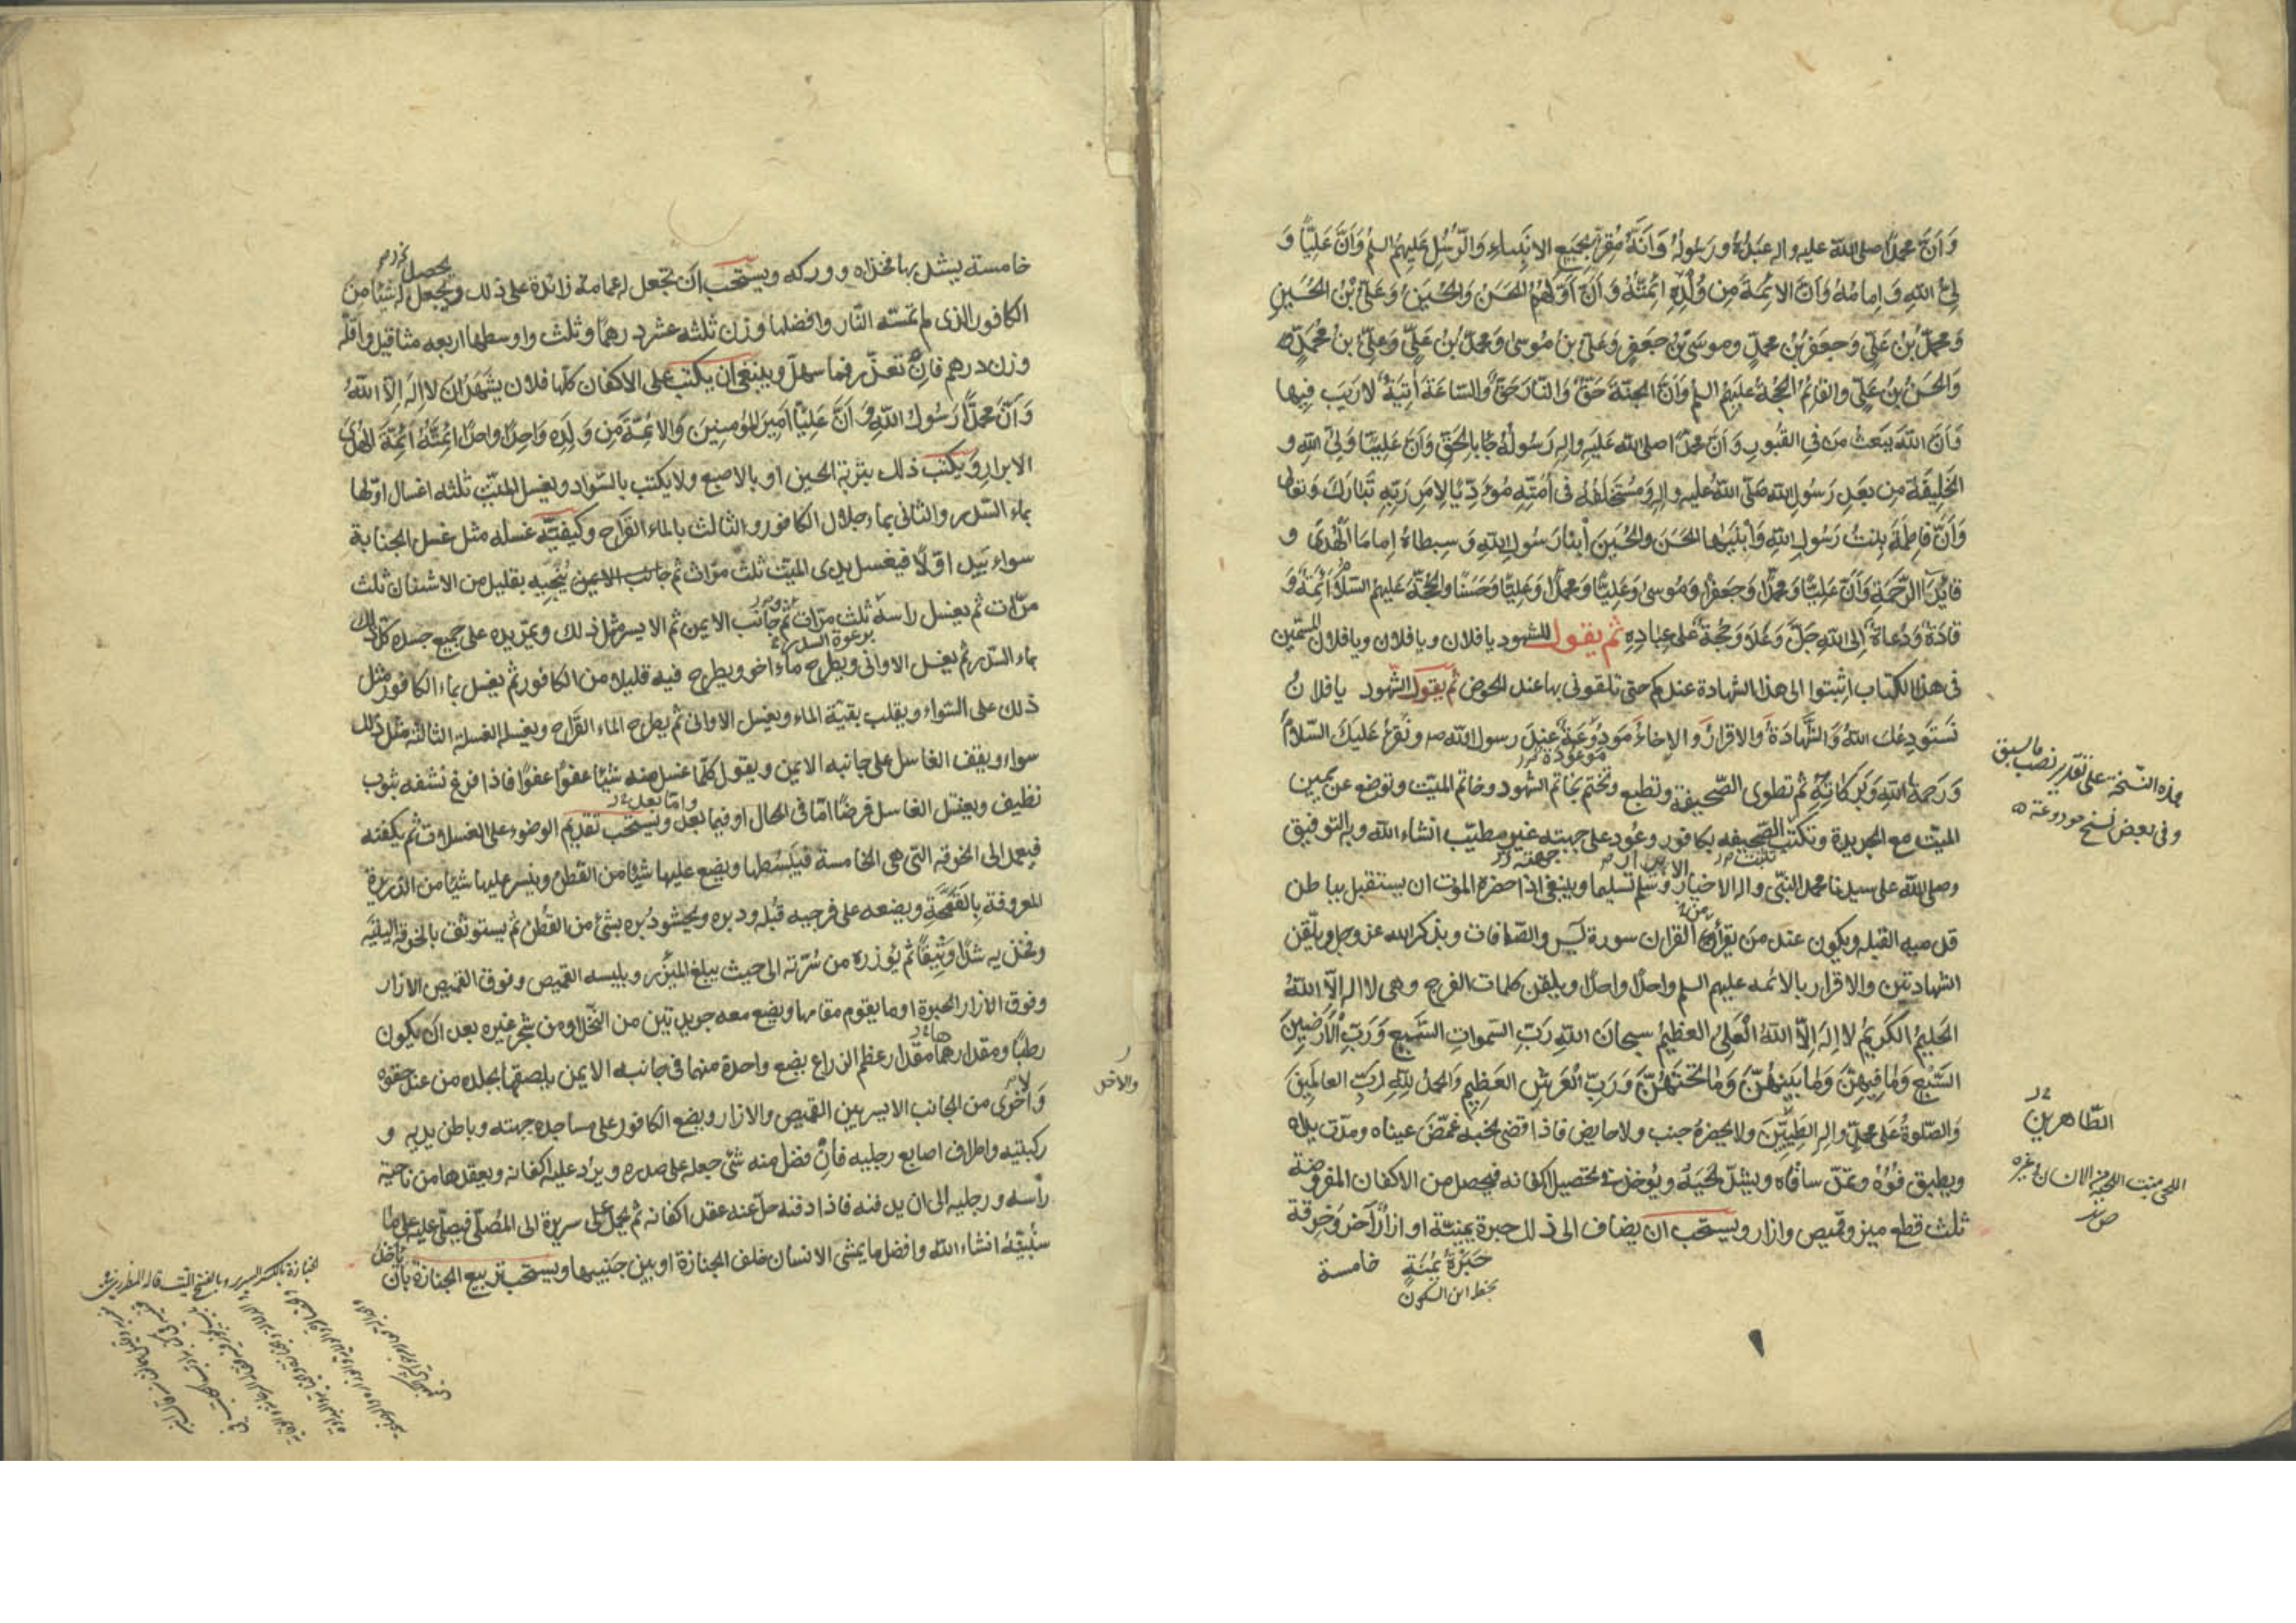 وَاَنَّ محمّدًا صلى الله عليه واله عَبْدُهُ ورَسُولُهُ وَاَنَّهُ مُقِرٌّ بِجَمِيعِ الانبِيَاءِ وَالرُّسُلِ عَلِيهِمُ السلم وَاَنَّ عَلِيًّا وَ
لِىُّ اللّهِ وَاِمَامُهُ وَاَنَّ الائِمَّةَ مِن وُلْدِهِ اَئِمَّتُهُ وَاَنَّ اَوَّلَهُمُ الحَسَنُ وَالحُسَينُ وَعَلىُّ بْنُ الحُسَينِ
وَمُحمّدُ بْنُ عَلِىٍّ وَجعفَرُ بْنُ محمّدٍ وموسَى بْنُ جَعفَرٍ وَعَلىُّ بنُ مُوسى وَمُحمّدُ بْنُ عَلِىٍّ وَعَلِىُّ بنُ مُحَمَّدٍ
وَالحَسَنُ بْنُ عَلِىٍّ والقائِمُ الحُجَّةُ عَليهِمُ السلم وَاَنَّ الجنَّةَ حَقٌّ وَالنّارَ حَقٌّ وَالسّاعَةَ اتِيَةٌ لارَيبَ فِيها
وَاَنَّ اللّهَ يَبعَثُ مَن فِى القُبُورِ وَاَنَّ محمّدًا صلى الله عَليَهِ والِهِ رَسُولُهُ جَاءَ بِالحَقِّ وَاَنَّ عَلِيًّا وَلِىُّ اللّهِ و
الخَلِيفَةُ مِن بَعدِ رَسُولِ اللّهِ صَلّى اللّهُ عَليهِ والِهِ وَمُستَخلَفُهُ فى اُمَّتِهِ مُؤَدِّيًا لاَِمرِ رَبِّهِ تَبَارَكَ وَتعالى
وَاَنَّ فَاطِمَةَ بِنتُ رَسُولِ اللّهِ وَابْنَيْها الحَسَنَ والحُسَينَ اَبْنَا رَسُولِ اللّهِ وَسِبطاهُ اِمامَا الهُدَى و
قائِدَا الرَّحمَةِ وَاَنَّ عَلِيًّا وَمُحمّدًا وَجَعفَرًا وَمُوسى وَعَلِيًّا وَمُحمّدًا وَعَلِيًّا وَحَسَنًا والحُجَّةَ عَليهِمُ السّلامُ اَئِمَّةٌ وَ
قادَةٌ وَدُعاةٌ اِلى اللّهِ جَلَّ وَعَلا وَحُجَّةٌ عَلى عِبَادِهِ ثم يقول للشهود يا فلان ويا فلان ويا فلان المسمّين
فى هذا الكتاب اثبتوا الى هذا الشهادة عندكم حتى تلقونى بها عند الحوض ثم يقول الشهود يا فلانُ
نَستَودِعُكَ اللهَ وَالشَّهادَةُ وَالاقرارُ وَالاِخاءُ مَودُوعَةٌ عِندَ رسول الله ص ونَقرَءُ عَليَكَ السّلامُ
موعودة
هذه النسخة على تقدير نصب ما سبق
وفى بعض نسخ مودوعة
وَرَحمةُ اللّهِ وَبَرَكاتُهُ ثم تطوى الصّحيفة وتطبع وتختم بخاتم الشهود وخاتم الميّت وتوضع عن يمين
الميّت مع الجريدة وتكتب الصّحيفه بكافور وعُود على جبهته غير مطيّب انشاء اللّه وبه التوفيق
وصلى اللّه على سيدنا محمد النّبى واله الاخيار وسلم تسليما وينبغى اذا حضره الموت ان يستقبل بباطن
قدميه القبله ويكون عنده من يقرأ القران سورة يس والصّافات ويذكر الله عزوجل ويلقّن
الشهادتين والاقرار بالائمه عليهم السلم واحدًا واحدًا ويلقن كلمات الفرج وهى لا اله اِلاَّ اللّهُ
الحَليمُ الكَرِيمُ لا اِلهَ اِلاَّ اللّهُ العَلِىُّ العظيمُ سبحانَ اللّهِ رَبِّ السّمواتِ السَّبعِ وَرَبِّ الاَرَضِينَ
السَّبْعِ وَمَا فِيهِنَّ وَمَا بَينَهُنَّ وَمَا تَحتَهُنَّ وَرَبِّ العَرشِ العَظِيمِ وَالحمدُ لِلّهِ رَبِّ العالَمِينَ
وَالصّلوةُ عَلى مُحمّدٍ والِهِ الطَيِّبِينَ ولا يحضرهُ جنب ولا حايض فاذا قضى نحبه غمّض عيناه ومدّت يداه
الطّاهرين
ويطبق فُوهُ وتمدّ ساقاه ويشدّ لحيَهُ ويُؤخذ فى تحصيل اكفانه فيحصل من الاكفان المفروضة
ثلث قطع ميزر وقميص وازار ويستحب ان يضاف الى ذلك حبرة يمنيّة او ازارٌ آخر وَخرقة
خامسة
حِبَرَةٌ يُمْنَةٍ
بخط ابن السكون
خامسة يشد بها فخذاه ووركه ويستحب ان تجعل له عمامة زائدة على ذلك ويجعل له شيئًا من
يحصل
الكافور الذى لم تمسّه النّار وافضلها وزن ثلثه عشر درهمًا وثلث واوسطها اربعه مثاقيل واقلّه
وزن درهم فانْ تعذّر فما سهل وينبغى ان يكتب على الاكفان كلّها فلان يشهد ان لا اله اِلاّ اللّهُ
وَاَنَّ محمَّدًا رَسُولُ اللّهِ وَ اَنَّ عَلِيًّا اَمِيرَ المؤمِنِينَ وَالائِمَّةَ مِن وَلَدِهِ وَاحِدًا واحدًا اَئِمَّتُهُ اَئِمَّةُ الهُدَى
الابرار وَيكتب ذلك بتربة الحسين او بالاصبع ولا يكتب بالسّواد ويغسل الميّت ثلثه اغسال اوّلها
بماء السّدر والثانى بماء جلال الكافور والثالث بالماء القَرَاح وكيفيّة غسله مثل غسل الجنابة
سواء يبد اوّلاً فيغسل يدى الميّت ثلث مرّات ثم جانب الايمن يُنجّيه بقليل من الاشنان ثلث
مرّات ثم يغسل راسهُ ثلث مرّات ثمّ جانب الايمن ثم الايسر مثل ذلك ويمرّ يده على جميع جسده كلّ ذلك
برغوة السدر
بماء السّدر ثم يغسل الاوانى ويطرح ماءً اخر ويطرح فيه قليلا من الكافور ثم يغسل بماء الكافور مثل
ذلك على السّواء ويقلب بقيّة الماء ويغسل الاوانى ثم يطرح الماء القَرَاح ويغسله الغسلة الثالثة مثل ذلك
سواء ويقف الغاسل على جانبه الايمن ويقول كلّما غسل منه شيئًا عفوًا عفوًا فاذا فرغ نشفه بثوب
نظيف ويغتسل الغاسل فرضًا امّا فى الحال او فيما بعد ويستحب تقديم الوضوء على الغسلات ثم يكفنه
وامّا بعد
فيعمد الى الخرقه التى هى الخامسة فيَبسُطها ويضع عليها شيئًا من القطن وينثر عليها شيئًا من الذريرة
المعروفة بِالقَمَّحَةِ ويضعه على فرجيه قُبله ودبره ويحشو دُبره بشئ من القُطن ثم يستوثق بالخرقه اليتيه
وفخذيه شدًّا وَثِيقًا ثم يؤزره من سُرّته الى حيث يبلغ الميزر ويلبسه القميص وفوق القميص الازار
وفوق الازار الحبرة او ما يقوم مقامها ويضع معه جريدتين من النّخل او من شجر غيره بعد ان يكون
رطبًا ومقدارهما مقدار عظم الذراع يضع واحدة منهما فى جانبه الايمن يلصقها بجلده من عند حقوه
وَاُخرى من الجانب الايسر بين القميص والازار ويضع الكافور على مساجده جبهته وباطن يديه و
ركبتيه واطراف اصابع رجليه فانْ فضل منه شئ جعله على صدره ويردّ عليه اكفانه ويعقدها من ناحية
رأسه ورجليه الى ان يدفنه فاذا دفنه حلّ عنه عقد اكفانه ثم يحمل على سريرة الى المُصلّى فيصلّى عليه على ما
سنُبيّنه انشاء اللّه وافضل ما يمشى الانسان خلف الجنازة او بين جنبيها ويستحب تربيع الجنازة بان
يأخذ